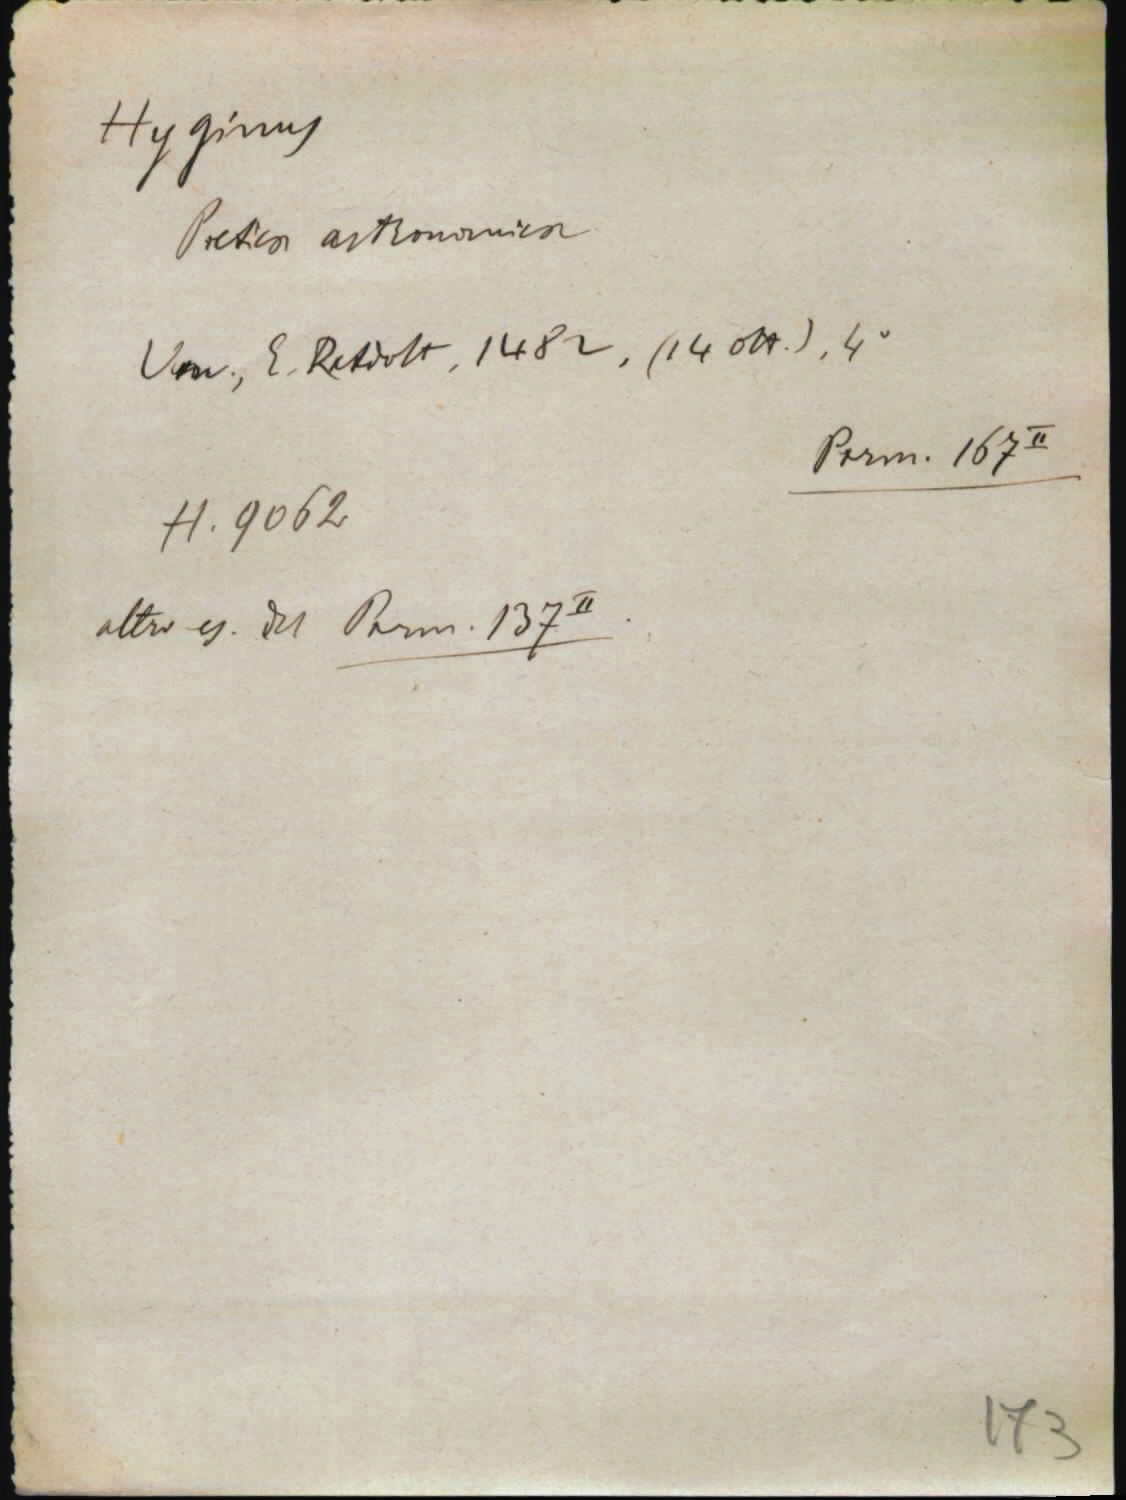 Hyginus
Poetica astronomica
Ven., E. Ratdolt, 1482, (14 ott.), 4°
Parm. 167 II
H. 9062
altro es. del Parm. 137 II.
173